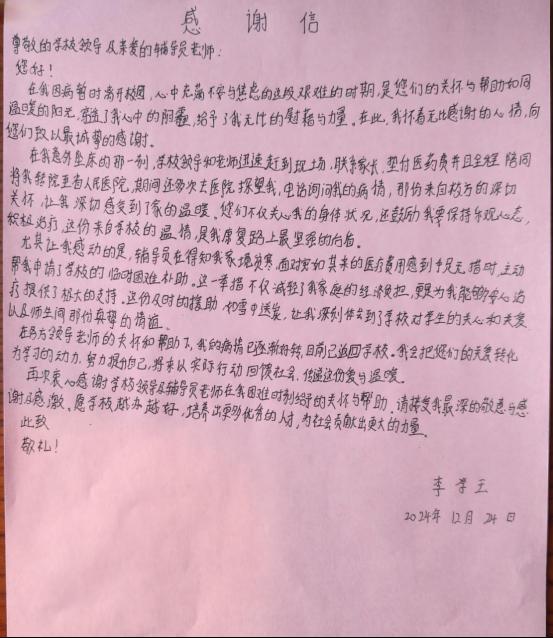 感谢信
尊敬的学校领导及亲爱的辅导员老师：
您好！
在我因病暂时离开校园，心中充满不安与焦虑的这段艰难的时期，是您们的关怀与帮助如同
温暖的阳光，穿透了我心中的阴霾，给予了我无比的慰藉与力量。在此，我怀着无比感谢的心情，向
您们致以最诚挚的感谢。
在我意外坠床的那一刻，学校领导和老师迅速赶到现场，联系家长，垫付医药费并且全程陪同
将我转院至省人民医院，期间还多次去医院探望我，电话询问我的病情，那份来自校方的深切
关怀，让我深切感受到了家的温暖。您们不仅关心我的身体状况，还鼓励我要保持乐观心态，
积极治疗，这份来自学校的温情，是我康复路上最坚强的后盾。
尤其让我感动的是，辅导员在得知我家境贫寒，面对突如其来的医疗费用感到手足无措时，主动
帮我申请了学校的临时困难补助。这一举措不仅减轻了我家庭的经济负担，更是为我能够专心治
疗提供了极大的支持。这份及时的援助，如雪中送炭，让我深刻体会到了学校对学生的关心和关爱
以及师生间那份真挚的情谊。
在各方领导老师的关怀和帮助下，我的病情已逐渐好转，目前已返回学校。我会把您们的关爱转化
为学习的动力，努力提升自己，将来以实际行动回馈社会，传递这份爱与温暖。
再次衷心感谢学校领导及辅导员老师在我困难时刻给予的关怀与帮助，请接受我最深的敬意与感
谢及感激。愿学校越办越好，培养出更多优秀的人才，为社会贡献出更大的力量。
此致
敬礼！
李学王
2024年12月24日